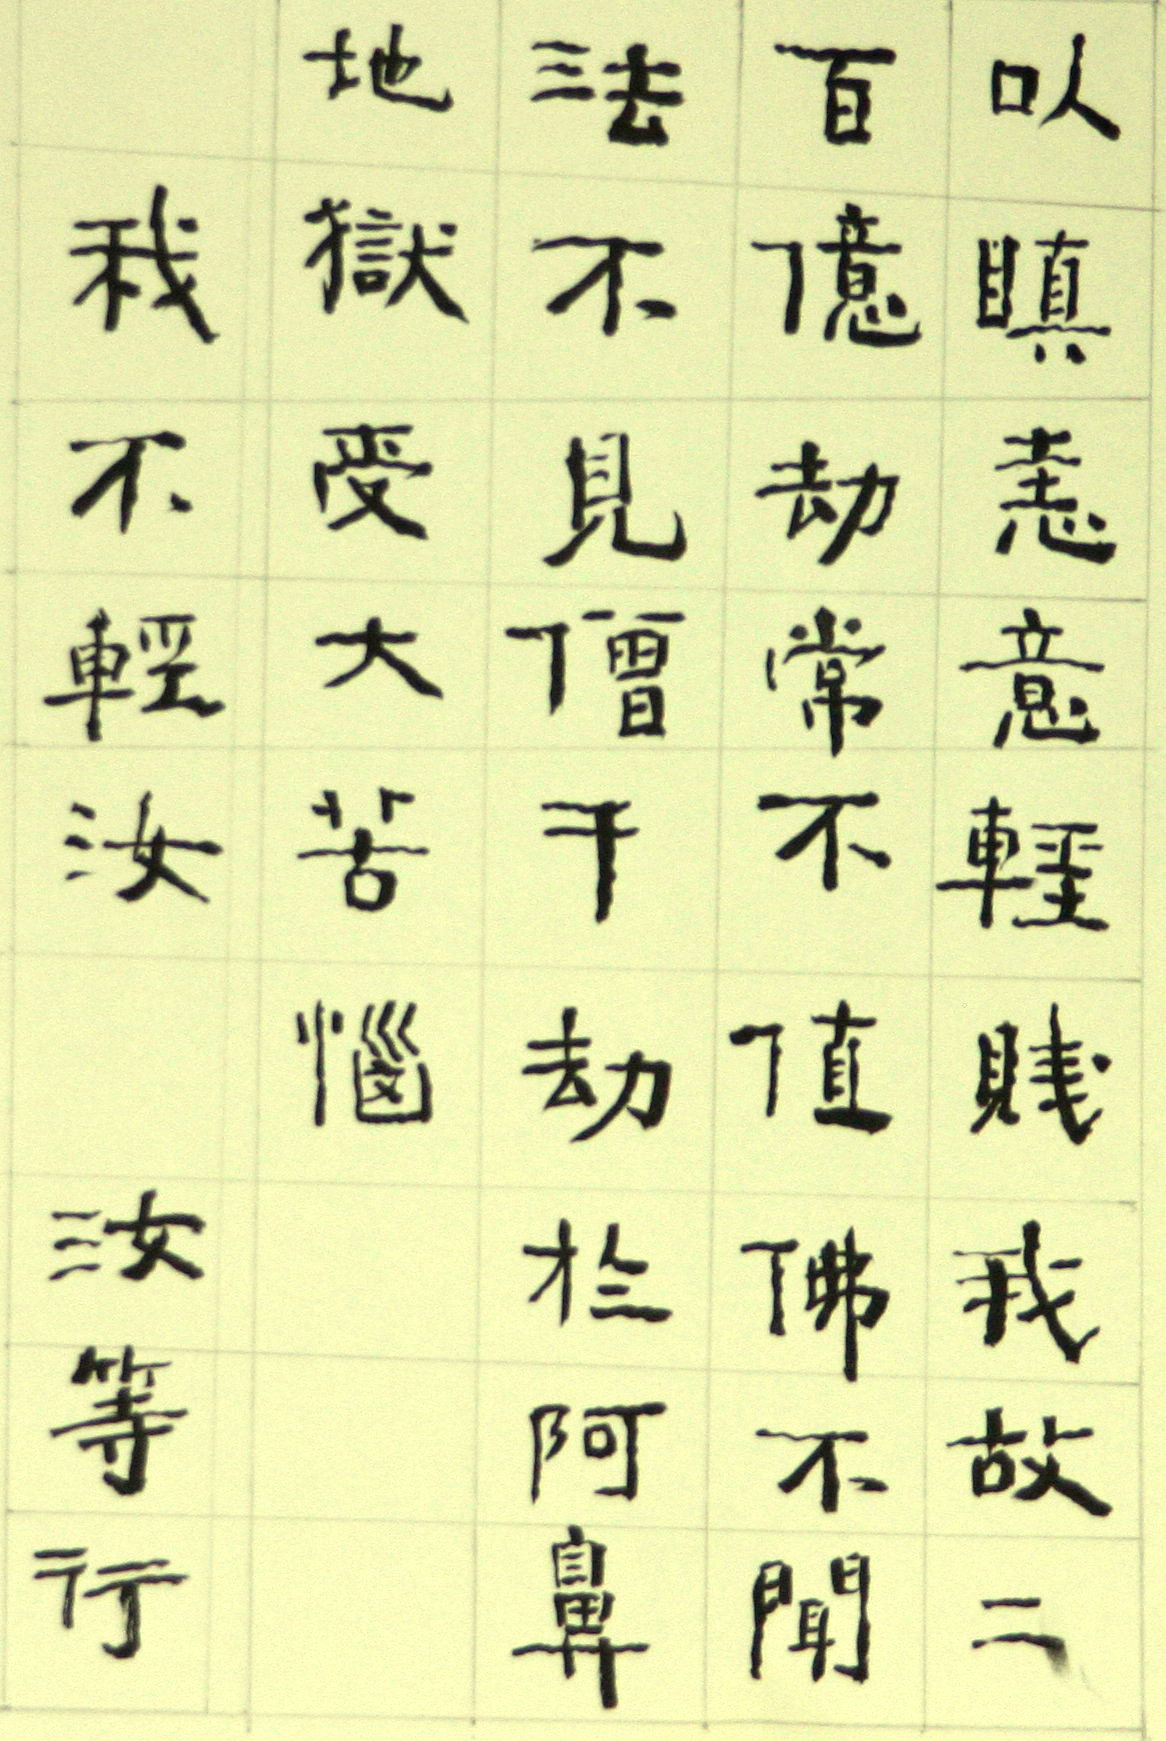 以瞋恚意輕賤我故二
百億劫常不值佛不聞
法不見僧千劫於阿鼻
地獄受大苦惱
我不輕汝 汝等行